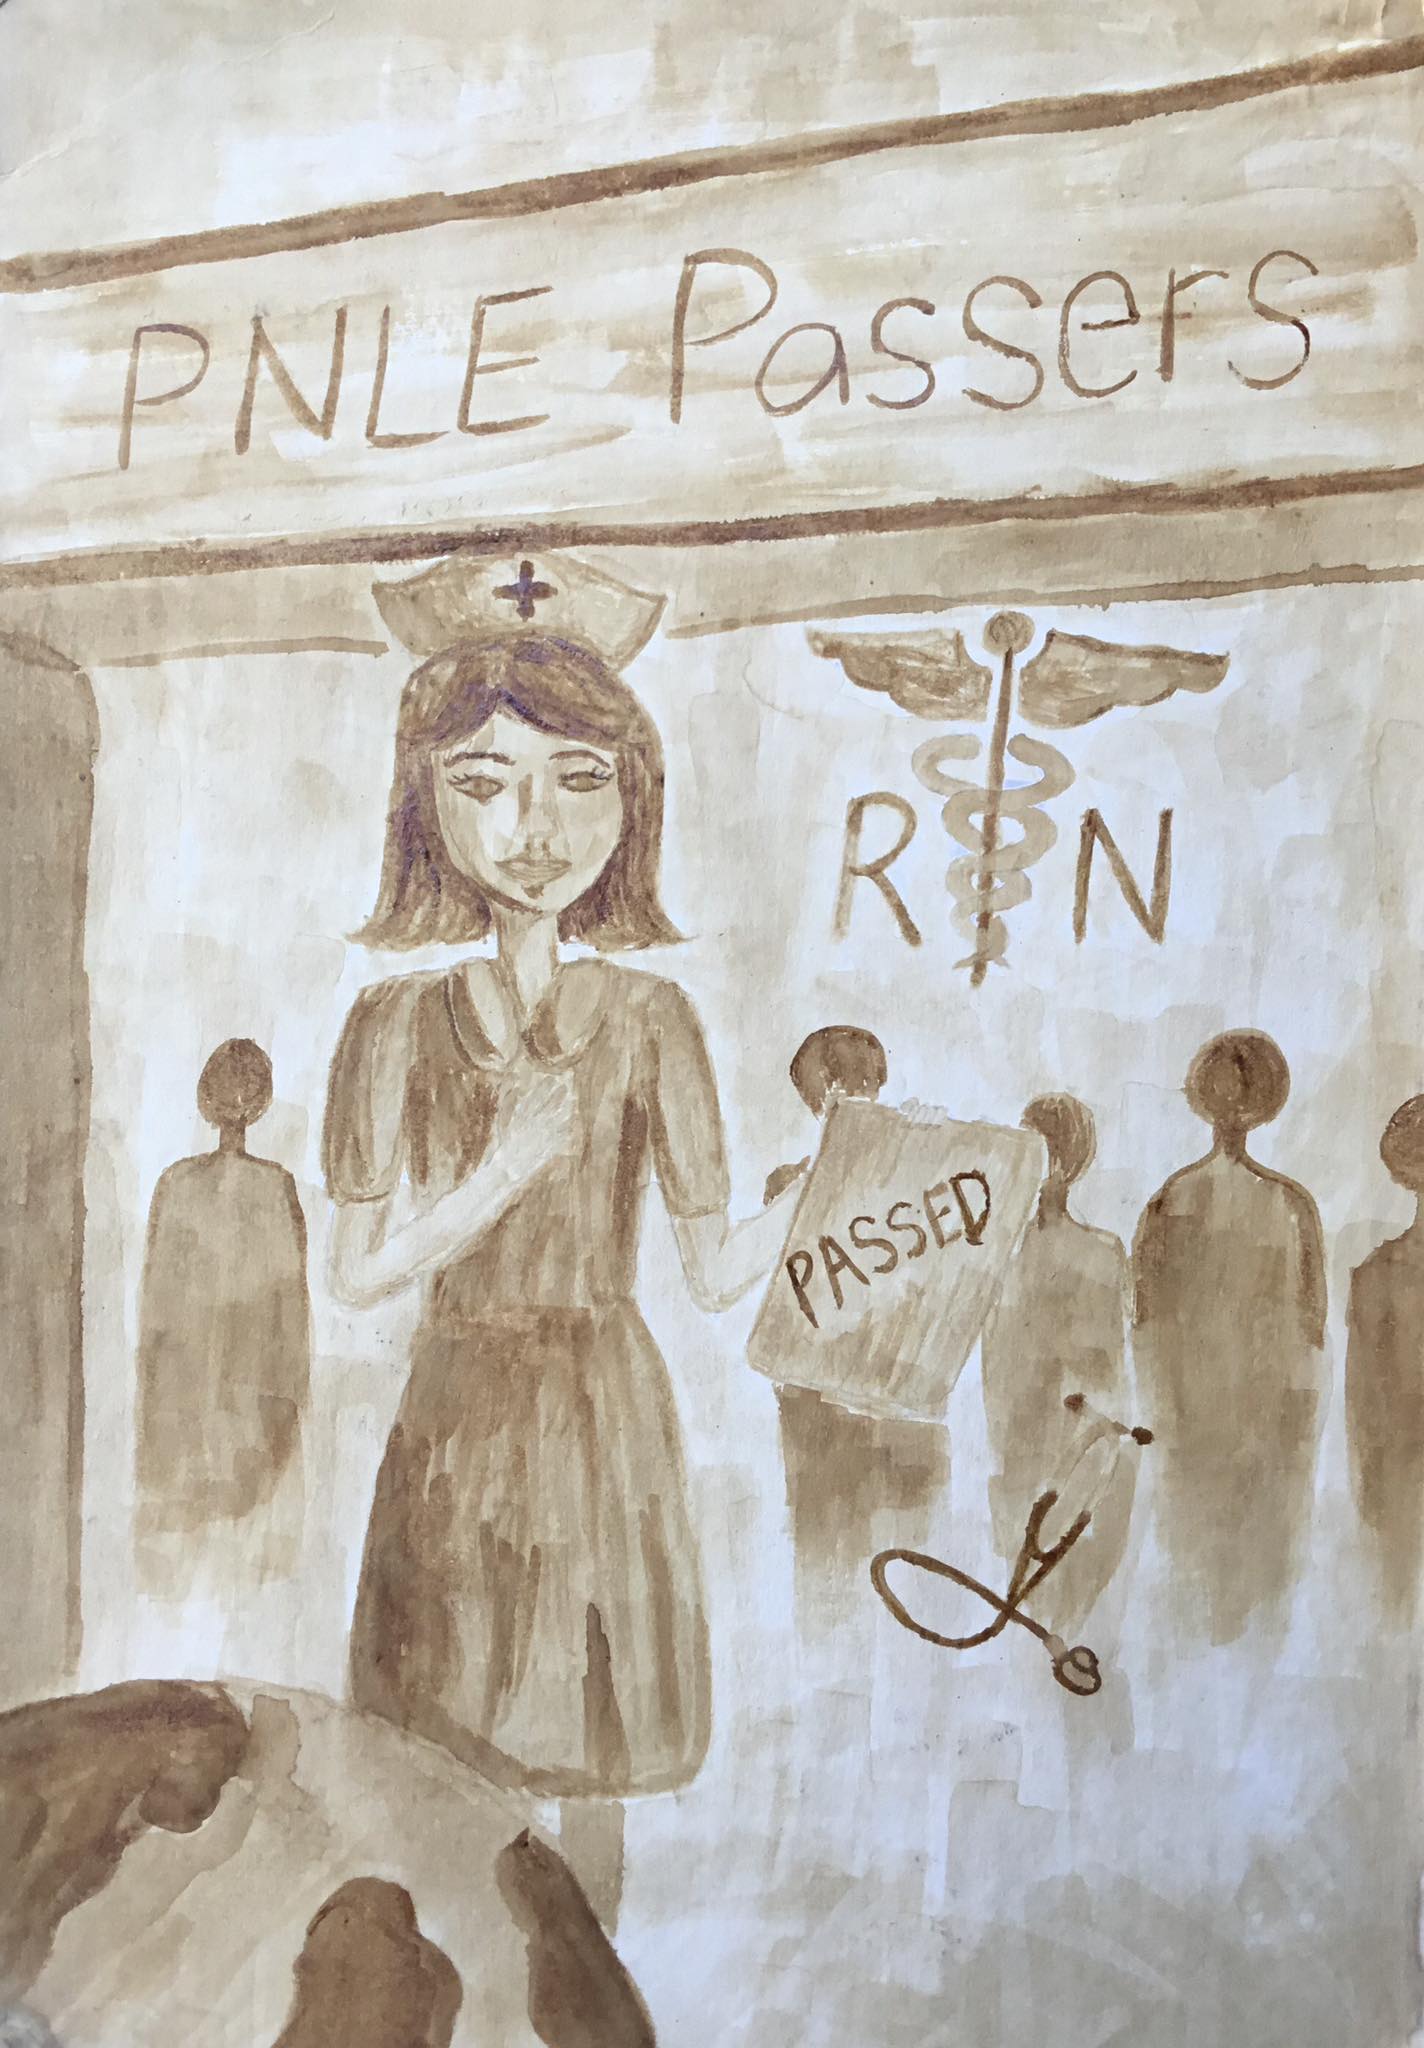 PNLE Passers
R N
PASSED